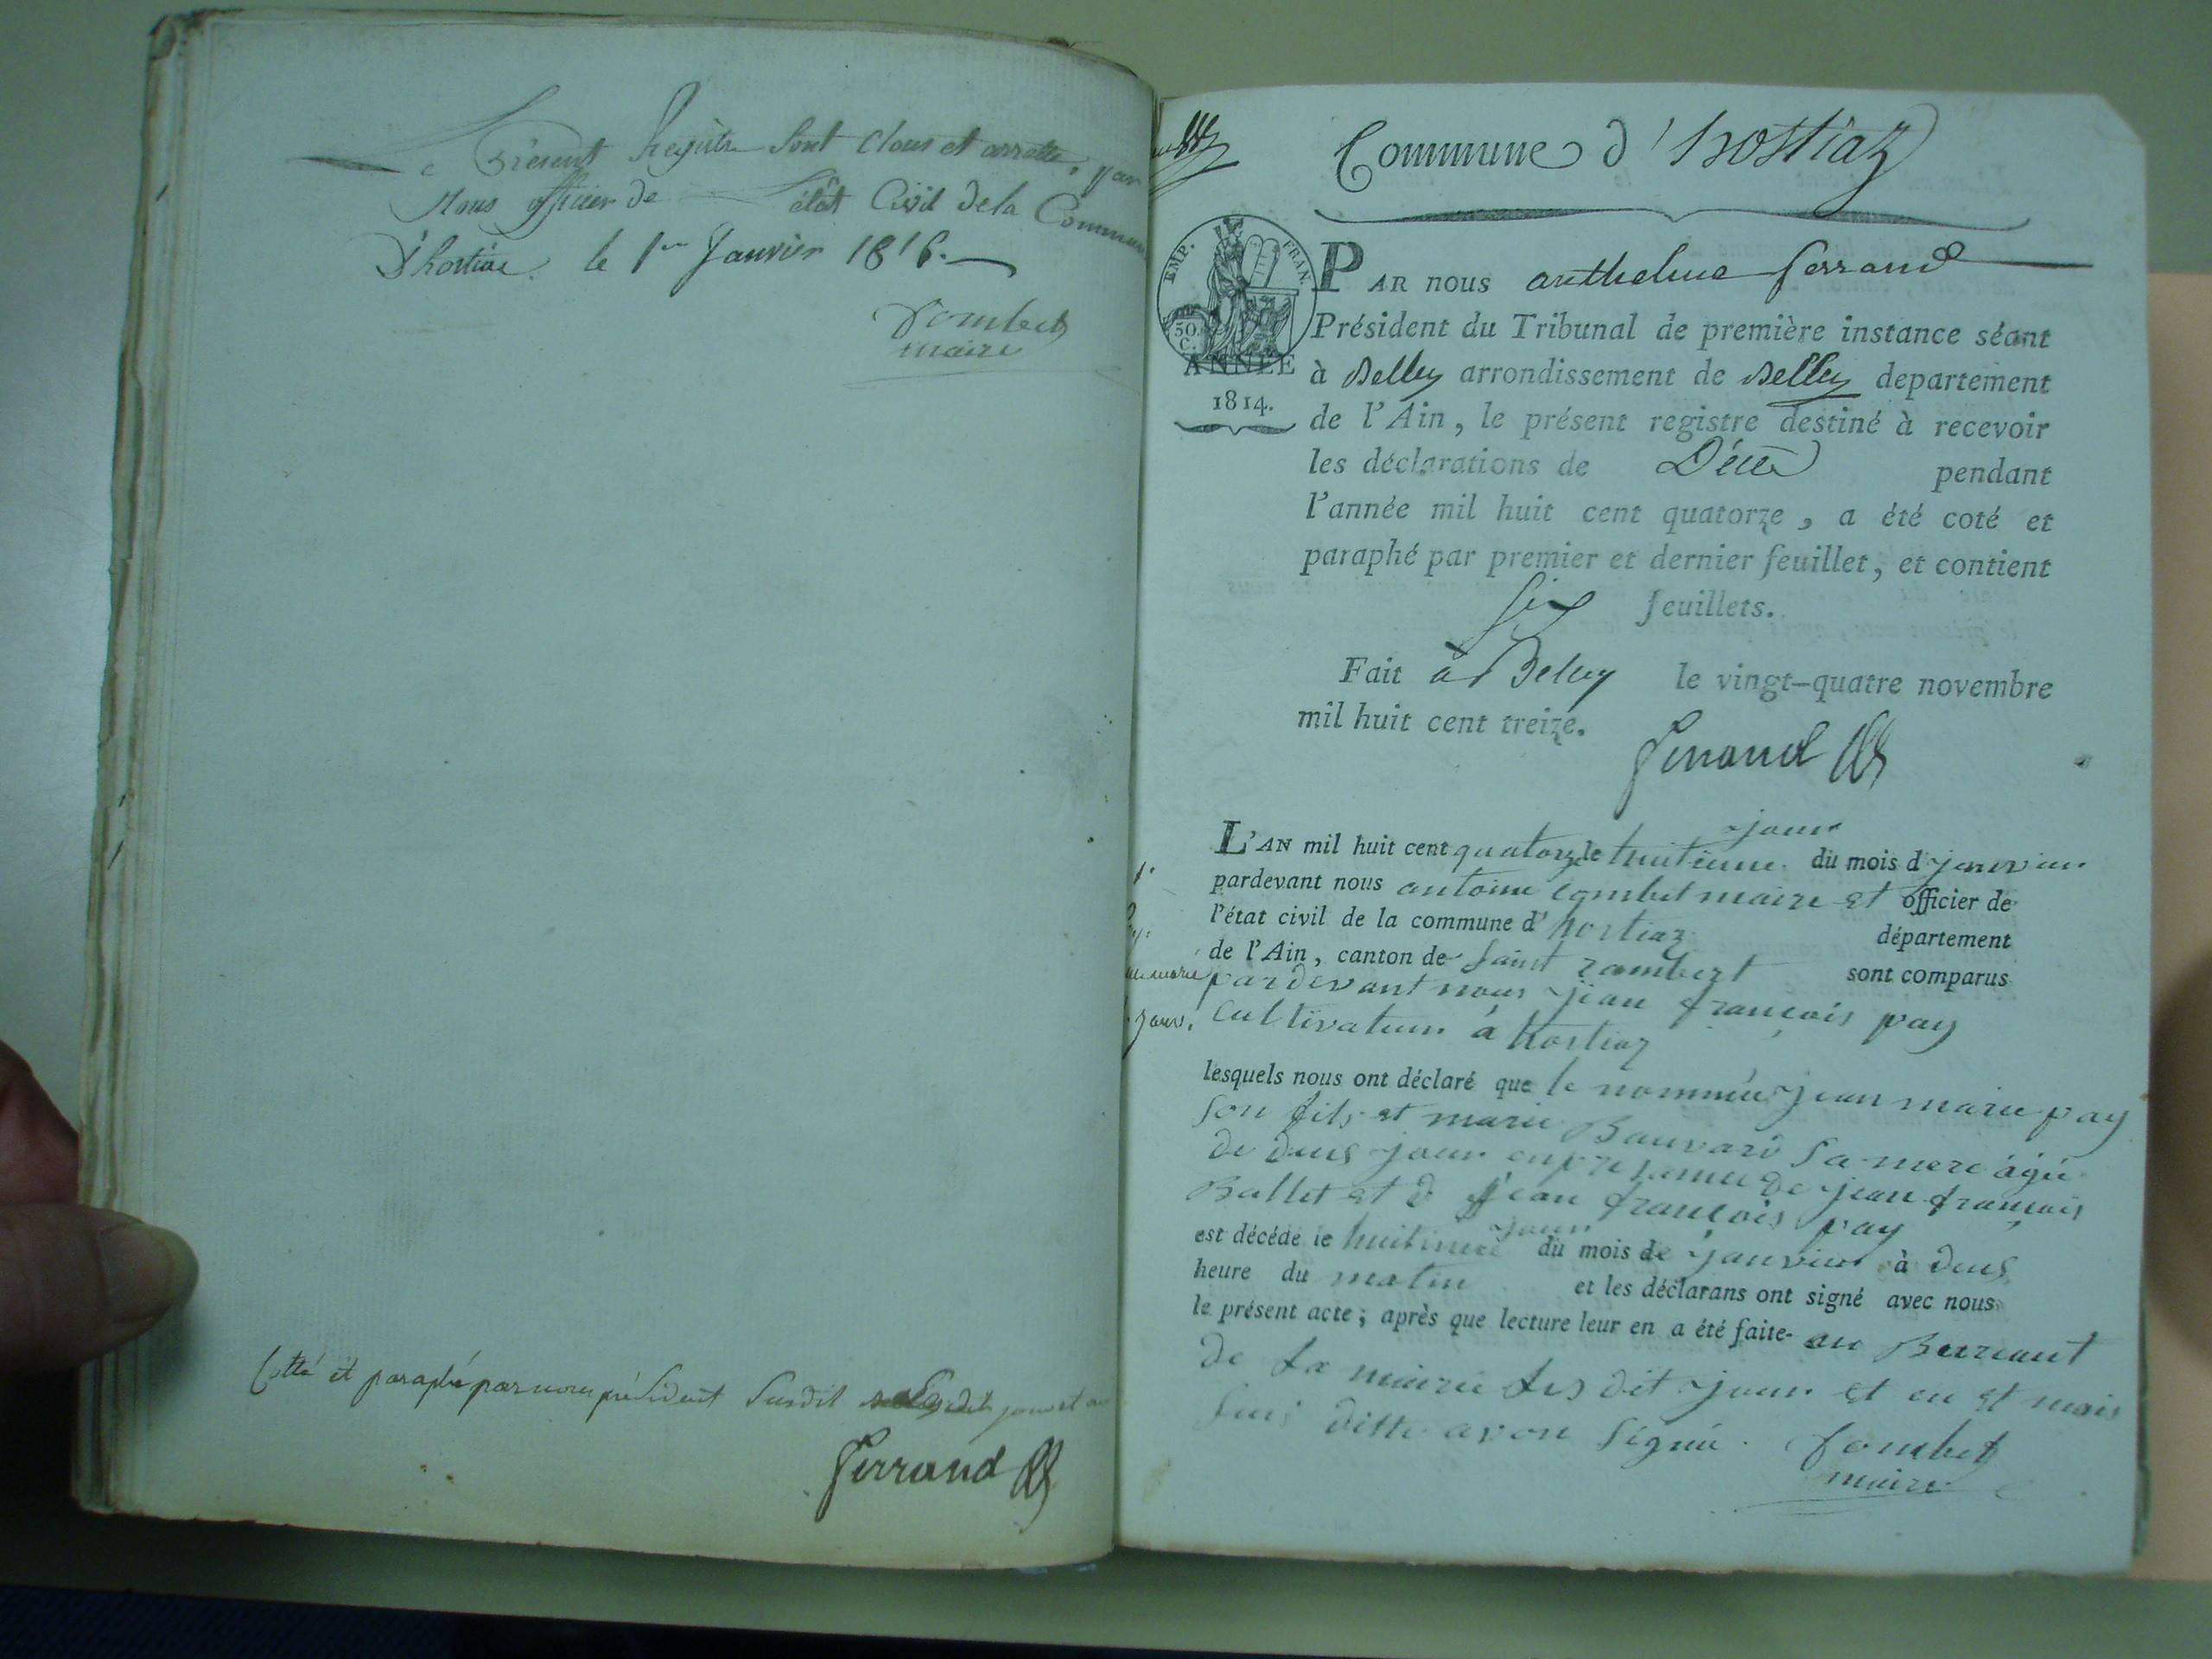 Présent Registre sont Clous et arretté, par
Nous officier de létat Civil de la Commune
D'hostiaz le 1er Janvier 1816.
Combet
maire
Cotté et paraphé par nous président Susdit jour et an
Ferrand
Commune d'hostiaz
EMP. FRAN.
50.
C.
ANNÉE
1814.
PAR nous anthelme ferrand
Président du Tribunal de première instance séant
à Belley arrondissement de Belley departement
de l'Ain, le présent registre destiné à recevoir
les déclarations de Décé pendant
l'année mil huit cent quatorze, a été coté et
paraphé par premier et dernier feuillet, et contient
six feuillets.
Fait à Belley le vingt-quatre novembre
mil huit cent treize.
Ferrand
1.
janv.
jour
L'AN mil huit cent quatorze le huitieme du mois d janvier
pardevant nous antoine Combet maire et officier de
l'état civil de la commune d' hostiaz département
de l'Ain, canton de saint rambert sont comparus
pardevant nous jean françois pay
Cultivateur à hostiaz
lesquels nous ont déclaré que le nommé jean marie pay
son fils et marie Bauvard sa mere agé
de deus jour en presance de jean françois
Ballet et d jean françois pay
jour
est décédé le huitieme du mois de janvier à deus
heure du matin et les déclarans ont signé avec nous
le présent acte; après que lecture leur en a été faite au Bureaut
de la mairie les dit jour et en et mois
sus ditte avon signé. Combet
maire